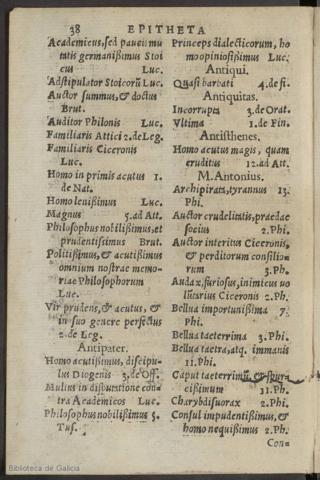 38 EPITHETA
Academicus, sed paucu mu
tatis germanißimus Stoi
cus Luc.
Adstipulator Stoicorũ Luc.
Auctor summus, & doctus
Brut.
Auditor Philonis Luc.
Familiaris Attici 2. de Leg.
Familiaris Ciceronis
Luc.
Homo in primis acutus 1.
de Nat.
Homo lenißimus Luc.
Magnus 5. ad Att.
Philosophus nobilißimus, et
prudentissimus Brut.
Politißimus, & acutißimus
omnium nostrae memo-
riae Philosophorum
Luc.
Vir prudens, & acutus, &
in suo genere perfectus
2. de Leg.
Antipater.
Homo acutißimus, discipu-
lus Diogenis 3. de Off.
Multus in disputatione con-
tra Academicos Luc.
Philosophus nobilißimus 5.
Tus.
Princeps dialecticorum, ho
mo opiniosißimus Luc.
Antiqui.
Quasi barbati 4. de fi.
Antiquitas.
Incorrupta 3. de Orat.
Vltima 1. de Fin.
Antisthenes.
Homo acutus magis, quam
eruditus 12. ad Att.
M. Antonius.
Archipirata, tyrannus 13.
Phi.
Auctor crudelitatis, praedae
socius 2. Phi.
Auctor interitus Ciceronis,
& perditorum consilio-
rum 3. Ph.
Audax, furiosus, inimicus uo
luntarius Ciceronis 2. Ph.
Bellua importunißima 7.
Phi.
Bellua taeterrima 3. Phi.
Bellua taetra, atq. immanis
11. Phi.
Caput taeterrimũ, & spur-
cißimum 11. Ph.
Charybdis uorax 2. Phi.
Consul impudentißimus, &
homo nequißimus 2. Ph.
Con=
Biblioteca de Galicia